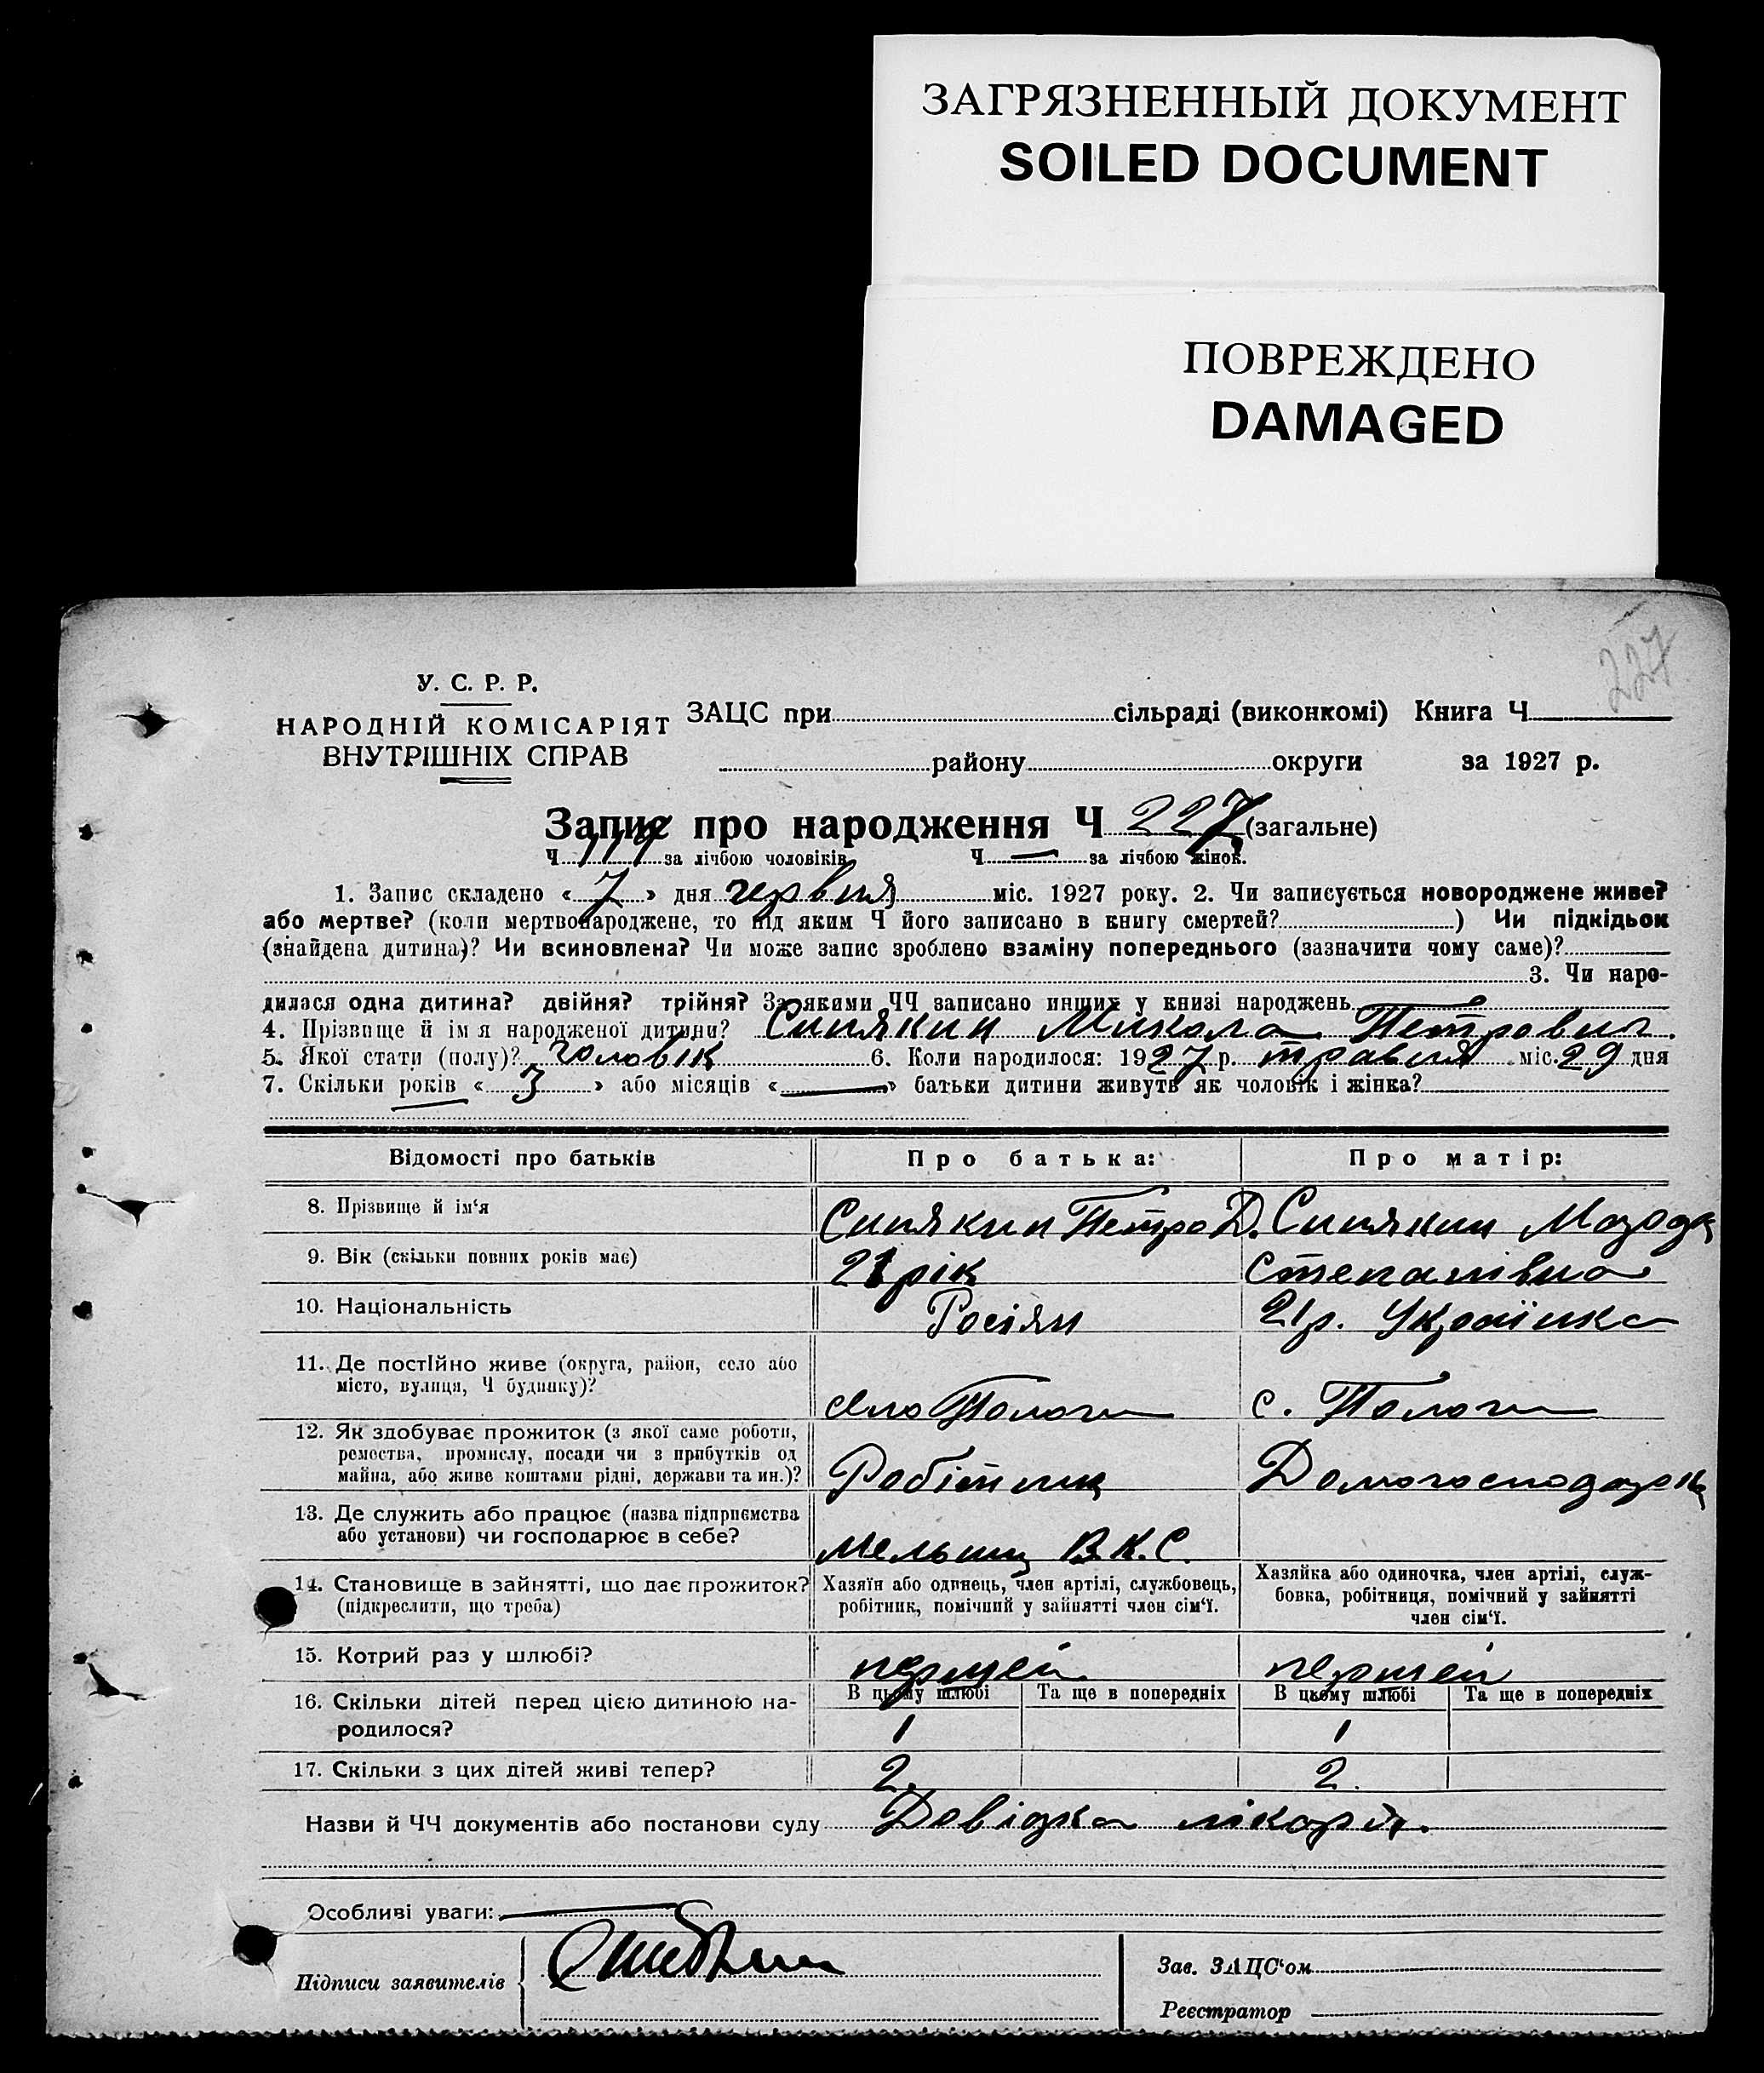 ЗАГРЯЗНЕННЫЙ ДОКУМЕНТ
SOILED DOCUMENT
ПОВРЕЖДЕНО
DAMAGED
227
У. С. Р. Р.
НАРОДНІЙ КОМІСАРІЯТ
ВНУТРІШНІХ СПРАВ
ЗАЦС при сільраді (виконкомі) Книга Ч
району округи за 1927 р.
Запис про народження Ч 227 (загальне)
Ч 119 за лічбою чоловіків Ч — за лічбою жінок.
1. Запис складено «7» дня червня міс. 1927 року. 2. Чи записується новороджене живе?
або мертве? (коли мертвонароджене, то під яким Ч його записано в книгу смертей? ) Чи підкідьок
(знайдена дитина)? Чи всиновлена? Чи може запис зроблено взаміну попереднього (зазначити чому саме)?
3. Чи наро-
дилася одна дитина? двійня? трійня? За якими ЧЧ записано инших у книзі народжень —
4. Прізвище й ім я народженої дитини? Синякин Микола Петрович.
5. Якої стати (полу)? чоловік 6. Коли народилося: 1927 р. травня міс. 29 дня
7. Скільки років «3» або місяців «—» батьки дитини живуть як чоловік і жінка?
Відомості про батьків Про батька: Про матір:
8. Прізвище й ім'я Синякин Петро Д. Синякин
9. Вік (скільки повних років має) 21 рік Степанівна
10. Національність Росіян 21 р. Українка
11. Де постійно живе (округа, район, село або
місто, вулиця, Ч будинку)? село Пологи с. Пологи
12. Як здобуває прожиток (з якої саме роботи,
ремества, промислу, посади чи з прибутків од
майна, або живе коштами рідні, держави та ин.)? Робітник Домогосподарка
13. Де служить або працює (назва підприємства
або установи) чи господарює в себе? Мельниця В.К.С.
14. Становище в зайнятті, що дає прожиток?
(підкреслити, що треба)
Хазяїн або одинець, член артілі, службовець,
робітник, помічний у зайнятті член сім'ї.
Хазяйка або одиночка, член артілі, служ-
бовка, робітниця, помічний у зайнятті
член сім'ї.
15. Котрий раз у шлюбі? першей першей
16. Скільки дітей перед цією дитиною на-
родилося?
В цьому шлюбі Та ще в попередніх В цьому шлюбі Та ще в попередніх
1 1
17. Скільки з цих дітей живі тепер? 2. 2.
Назви й ЧЧ документів або постанови суду Довідка лікаря.
Особливі уваги: —
Підписи заявителів
Зав. ЗАЦС'ом
Реєстратор